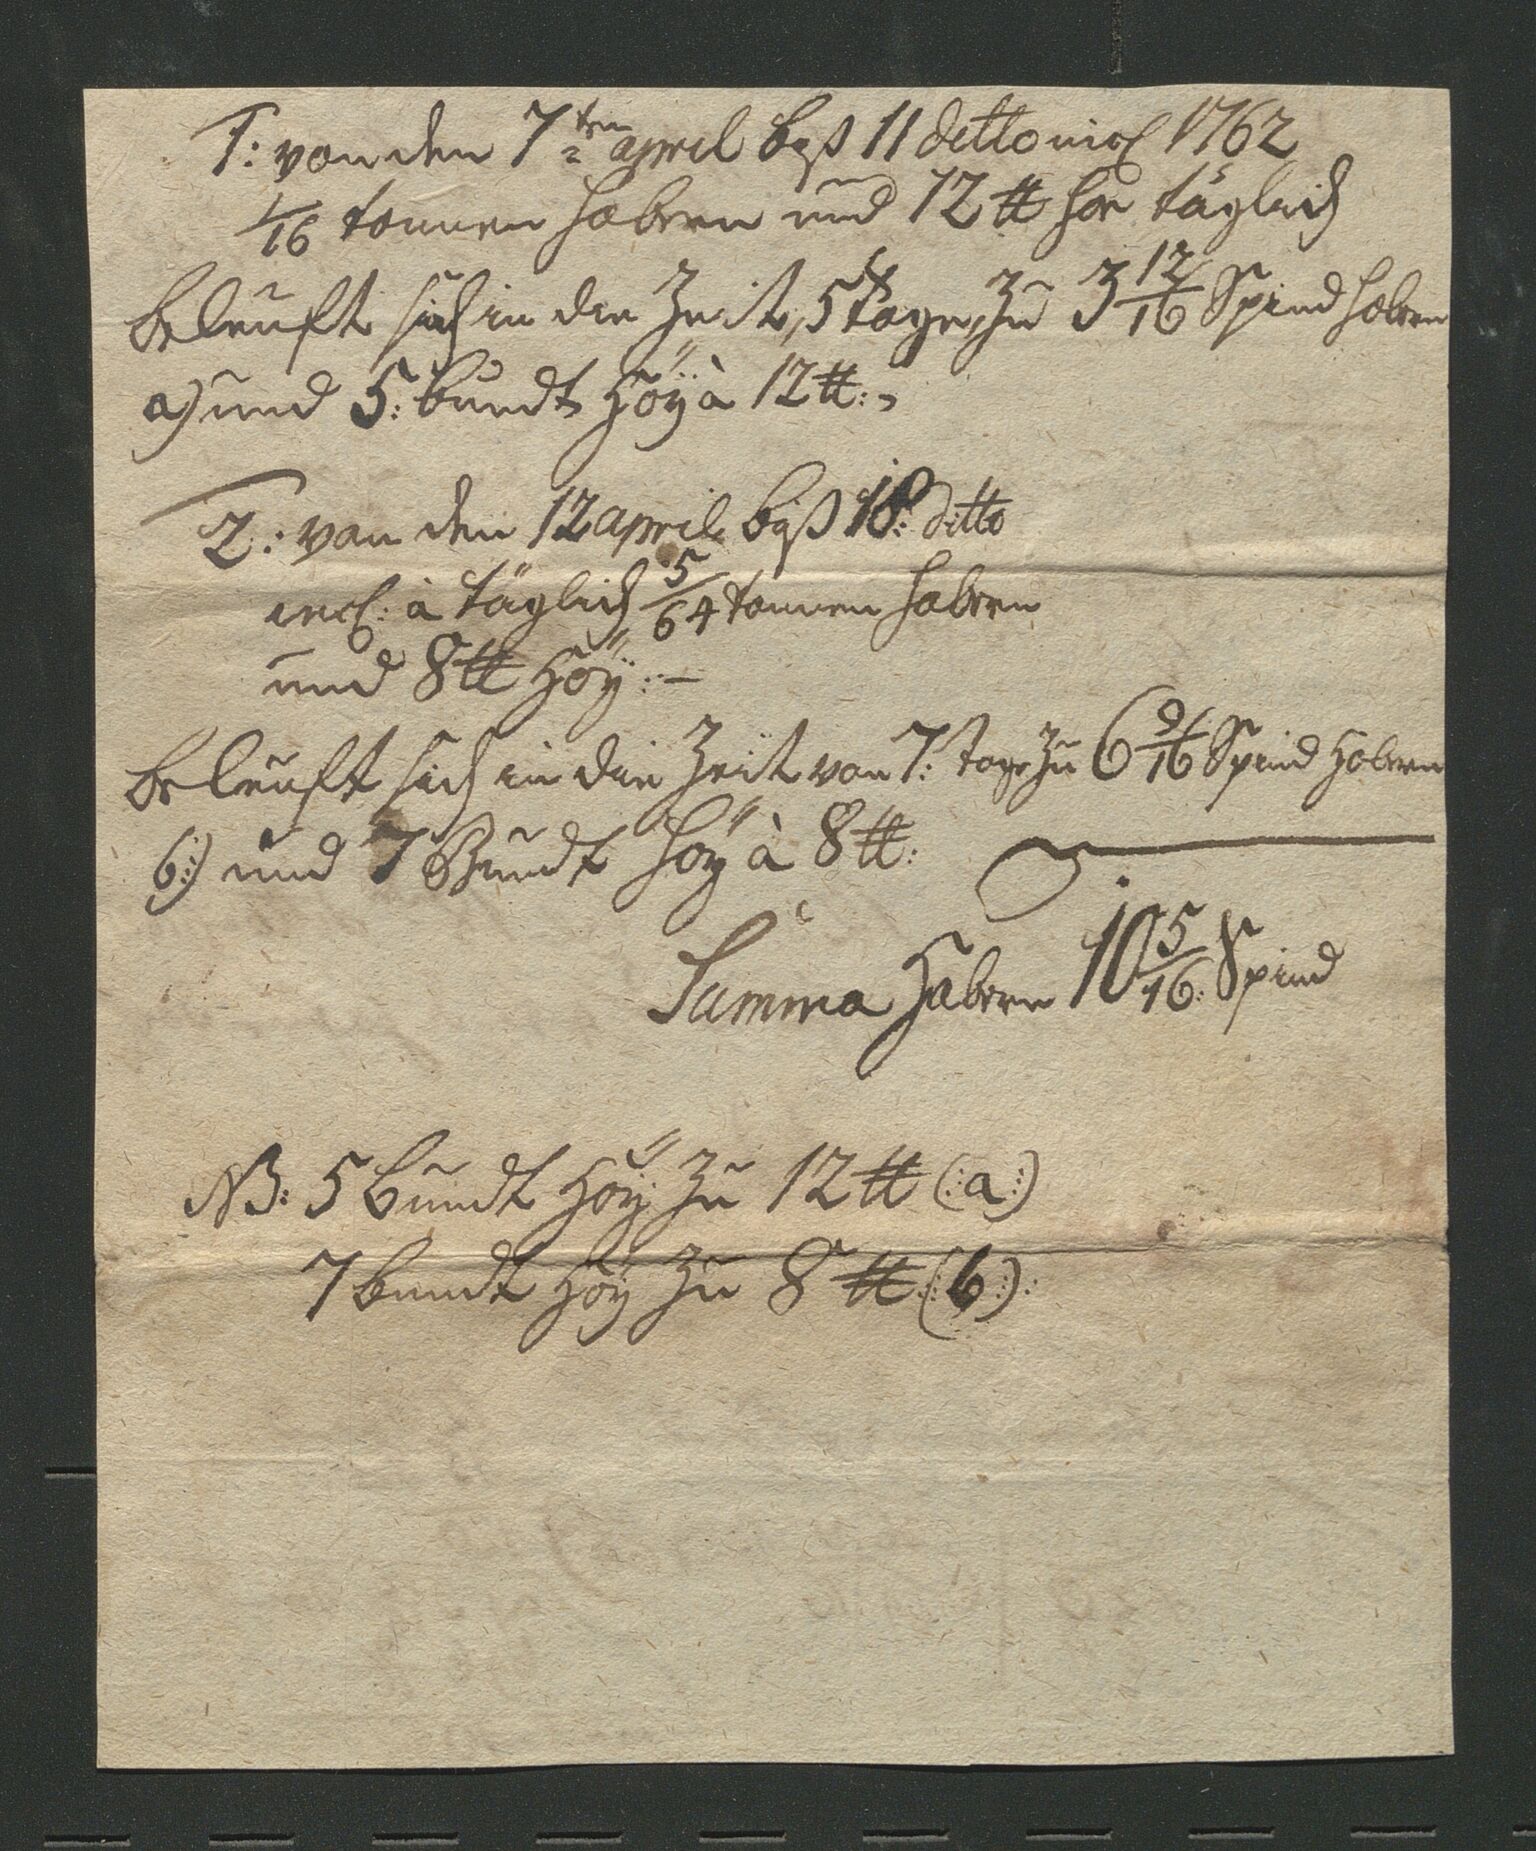 1: von den 7ten april biß 11 ditto incl 1762
1/16 tonnen habern und 12 ℔ hoe täglich
beleuft sich in die Zeit, 5 tage, zu 3 12/16 Spind habern
a) und 5: bundt Höÿ à 12 ℔:
2: von den 12 april biß 18: ditto
incl: à täglich 5/64 tonnen habern
und 8 ℔ Höÿ: —
beleuft sich in die Zeit von 7: tage zu 6 9/16 Spind Habern
b:) und 7 Bundt höÿ à 8 ℔:
Summa Habern 10 5/16: Spind
NB: 5 bundt Höÿ zu 12 ℔ (: a :)
7 bundt Höÿ zu 8 ℔ (: b :)